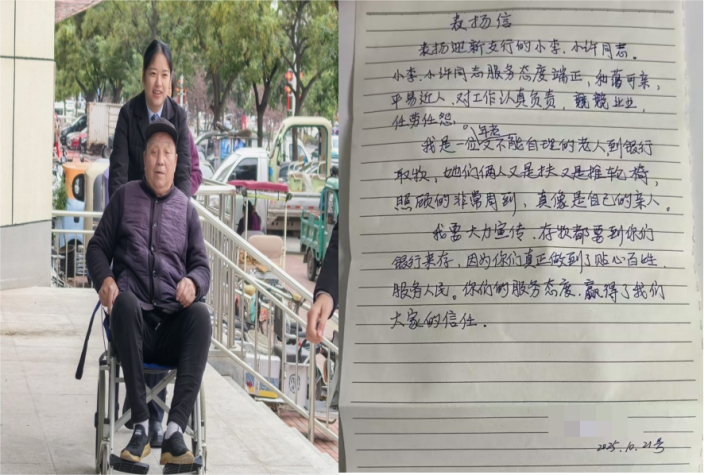 表扬信
表扬迎新支行的小李、小许同志。
小李、小许同志服务态度端正,和蔼可亲,
平易近人,对工作认真负责,兢兢业业,
任劳任怨。
我是一位年老又不能自理的老人,到银行
取款,她们俩人又是扶又是推轮椅,
照顾的非常周到,真像是自己的亲人。
我要大力宣传,存款都要到你们
银行来存,因为你们真正做到了贴心百姓,
服务人民。你们的服务态度,赢得了我们
大家的信任.
2025.10.21号